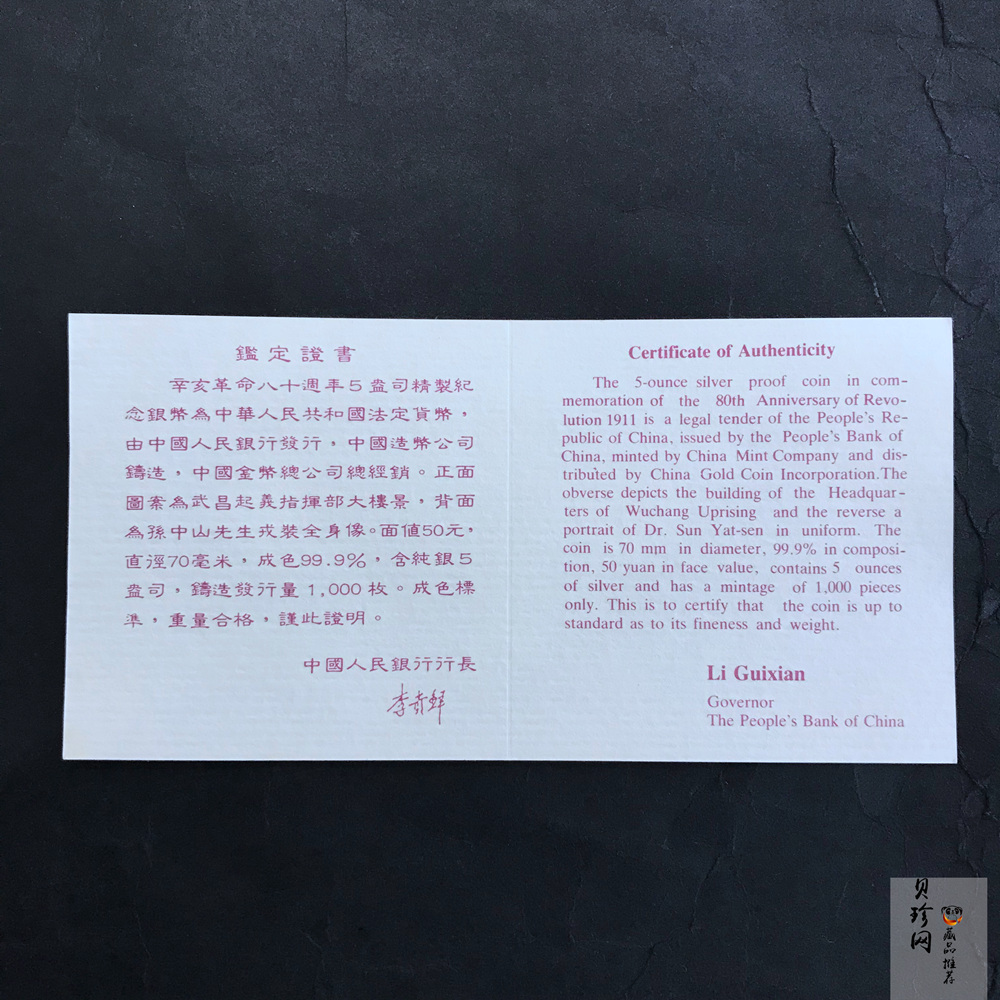 鑑定證書
辛亥革命八十週年5盎司精製紀
念銀幣為中華人民共和國法定貨幣，
由中國人民銀行發行，中國造幣公司
鑄造，中國金幣總公司總經銷。正面
圖案為武昌起義指揮部大樓景，背面
為孫中山先生戎裝全身像。面值50元，
直徑70毫米，成色99.9%，含純銀5
盎司，鑄造發行量1,000枚。成色標
準，重量合格，謹此證明。
中國人民銀行行長
李贵鲜
Certificate of Authenticity
The 5-ounce silver proof coin in com-
memoration of the 80th Anniversary of Revo-
lution 1911 is a legal tender of the People's Re-
public of China, issued by the People's Bank of
China, minted by China Mint Company and dis-
tributed by China Gold Coin Incorporation.The
obverse depicts the building of the Headquar-
ters of Wuchang Uprising and the reverse a
portrait of Dr. Sun Yat-sen in uniform. The
coin is 70 mm in diameter, 99.9% in composi-
tion, 50 yuan in face value, contains 5 ounces
of silver and has a mintage of 1,000 pieces
only. This is to certify that the coin is up to
standard as to its fineness and weight.
Li Guixian
Governor
The People's Bank of China
贝珍网
藏品推荐